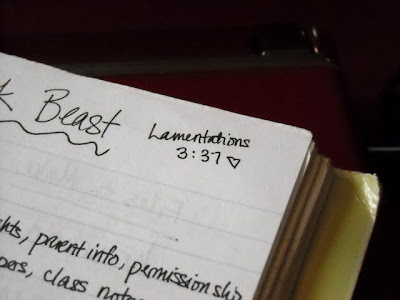 k Beast
Lamentations
3:37 ♡
hts, parent info, permission slip
pers, class notes